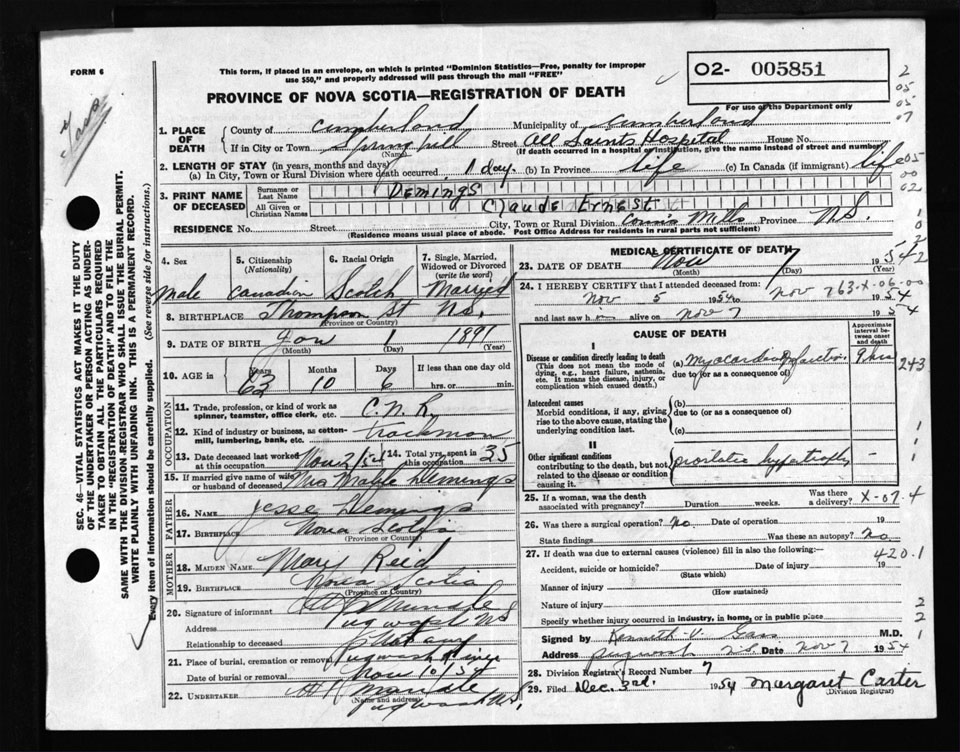 FORM 6
This form, if placed in an envelope, on which is printed "Dominion Statistics—Free, penalty for improper
use $50," and properly addressed will pass through the mail "FREE"
O2- 005851
PROVINCE OF NOVA SCOTIA—REGISTRATION OF DEATH
For use of the Department only
1. PLACE OF DEATH County of Cumberland Municipality of Cumberland
If in City or Town Springhill Street All Saints Hospital House No.
(Name) (If death occurred in a hospital or institution, give the name instead of street and number)
2. LENGTH OF STAY (in years, months and days)
(a) In City, Town or Rural Division where death occurred 1 day. (b) In Province life (c) In Canada (if immigrant) life
3. PRINT NAME OF DECEASED Surname or Last Name Demings
All Given or Christian Names Claude Ernest
RESIDENCE No. Street City, Town or Rural Division Mills Province N.S.
(Residence means usual place of abode. Post Office Address for residents in rural parts not sufficient)
4. Sex male
5. Citizenship (Nationality) Canadian
6. Racial Origin Scotch
7. Single, Married, Widowed or Divorced (write the word) Married
8. BIRTHPLACE Thompson St N.S.
(Province or Country)
9. DATE OF BIRTH Jan 1 1891
(Month) (Day) (Year)
10. AGE Years 63 Months 10 Days 6 If less than one day old
hrs. or min.
OCCUPATION
11. Trade, profession, or kind of work as spinner, teamster, office clerk, etc. C.N.R.
12. Kind of industry or business, as cotton-mill, lumbering, bank, etc. Trackman
13. Date deceased last worked at this occupation Nov 2/54
14. Total yrs. spent in this occupation 35
15. If married give name of wife or husband of deceased Mrs Demings
FATHER
16. Name Jesse Demings
17. Birthplace Nova Scotia
(Province or Country)
MOTHER
18. MAIDEN NAME Mary Reid
19. BIRTHPLACE Nova Scotia
(Province or Country)
20. Signature of informant
Address Pugwash N.S
Relationship to deceased
21. Place of burial, cremation or removal Pugwash River
Date of burial or removal Nov 10/54
22. UNDERTAKER
(Name and address)
Pugwash N.S.
MEDICAL CERTIFICATE OF DEATH
23. DATE OF DEATH Nov 7 1954
(Month) (Day) (Year)
24. I HEREBY CERTIFY that I attended deceased from
Nov 5 1954 to Nov 7 1954
and last saw h alive on Nov 7 1954
63-X-06-00
CAUSE OF DEATH
Approximate interval between onset and death
I
Disease or condition directly leading to death (a) Myocardial Infarction
(This does not mean the mode of dying, e.g., heart failure, asthenia, etc. It means the disease, injury, or complication which caused death.)
due to (or as a consequence of)
243
Antecedent causes
Morbid conditions, if any, giving rise to the above cause, stating the underlying condition last.
(b)
due to (or as a consequence of)
(c)
II
Other significant conditions
contributing to the death, but not related to the disease or condition causing it.
prostatic hypertrophy
25. If a woman, was the death associated with pregnancy? Duration weeks. Was there a delivery? X-07-4
26. Was there a surgical operation? No Date of operation 19
State findings Was there an autopsy? No
27. If death was due to external causes (violence) fill in also the following:—
420.1
Accident, suicide or homicide? Date of injury 19
(State which)
Manner of injury
(How sustained)
Nature of injury
Specify whether injury occurred in industry, in home, or in public place
Signed by Kenneth V. Gass M.D.
Address Pugwash N.S. Date Nov 7 1954
28. Division Registrar's Record Number 7
29. Filed Dec. 3rd. 1954 Margaret Carter
(Division Registrar)
SEC. 46—VITAL STATISTICS ACT MAKES IT THE DUTY
OF THE UNDERTAKER OR PERSON ACTING AS UNDER-
TAKER TO OBTAIN ALL THE PARTICULARS REQUIRED
IN THE "REGISTRATION OF DEATH" AND TO FILE THE
SAME WITH THE DIVISION REGISTRAR WHO SHALL ISSUE THE BURIAL PERMIT.
WRITE PLAINLY WITH UNFADING INK. THIS IS A PERMANENT RECORD.
Every item of information should be carefully supplied. (See reverse side for instructions.)